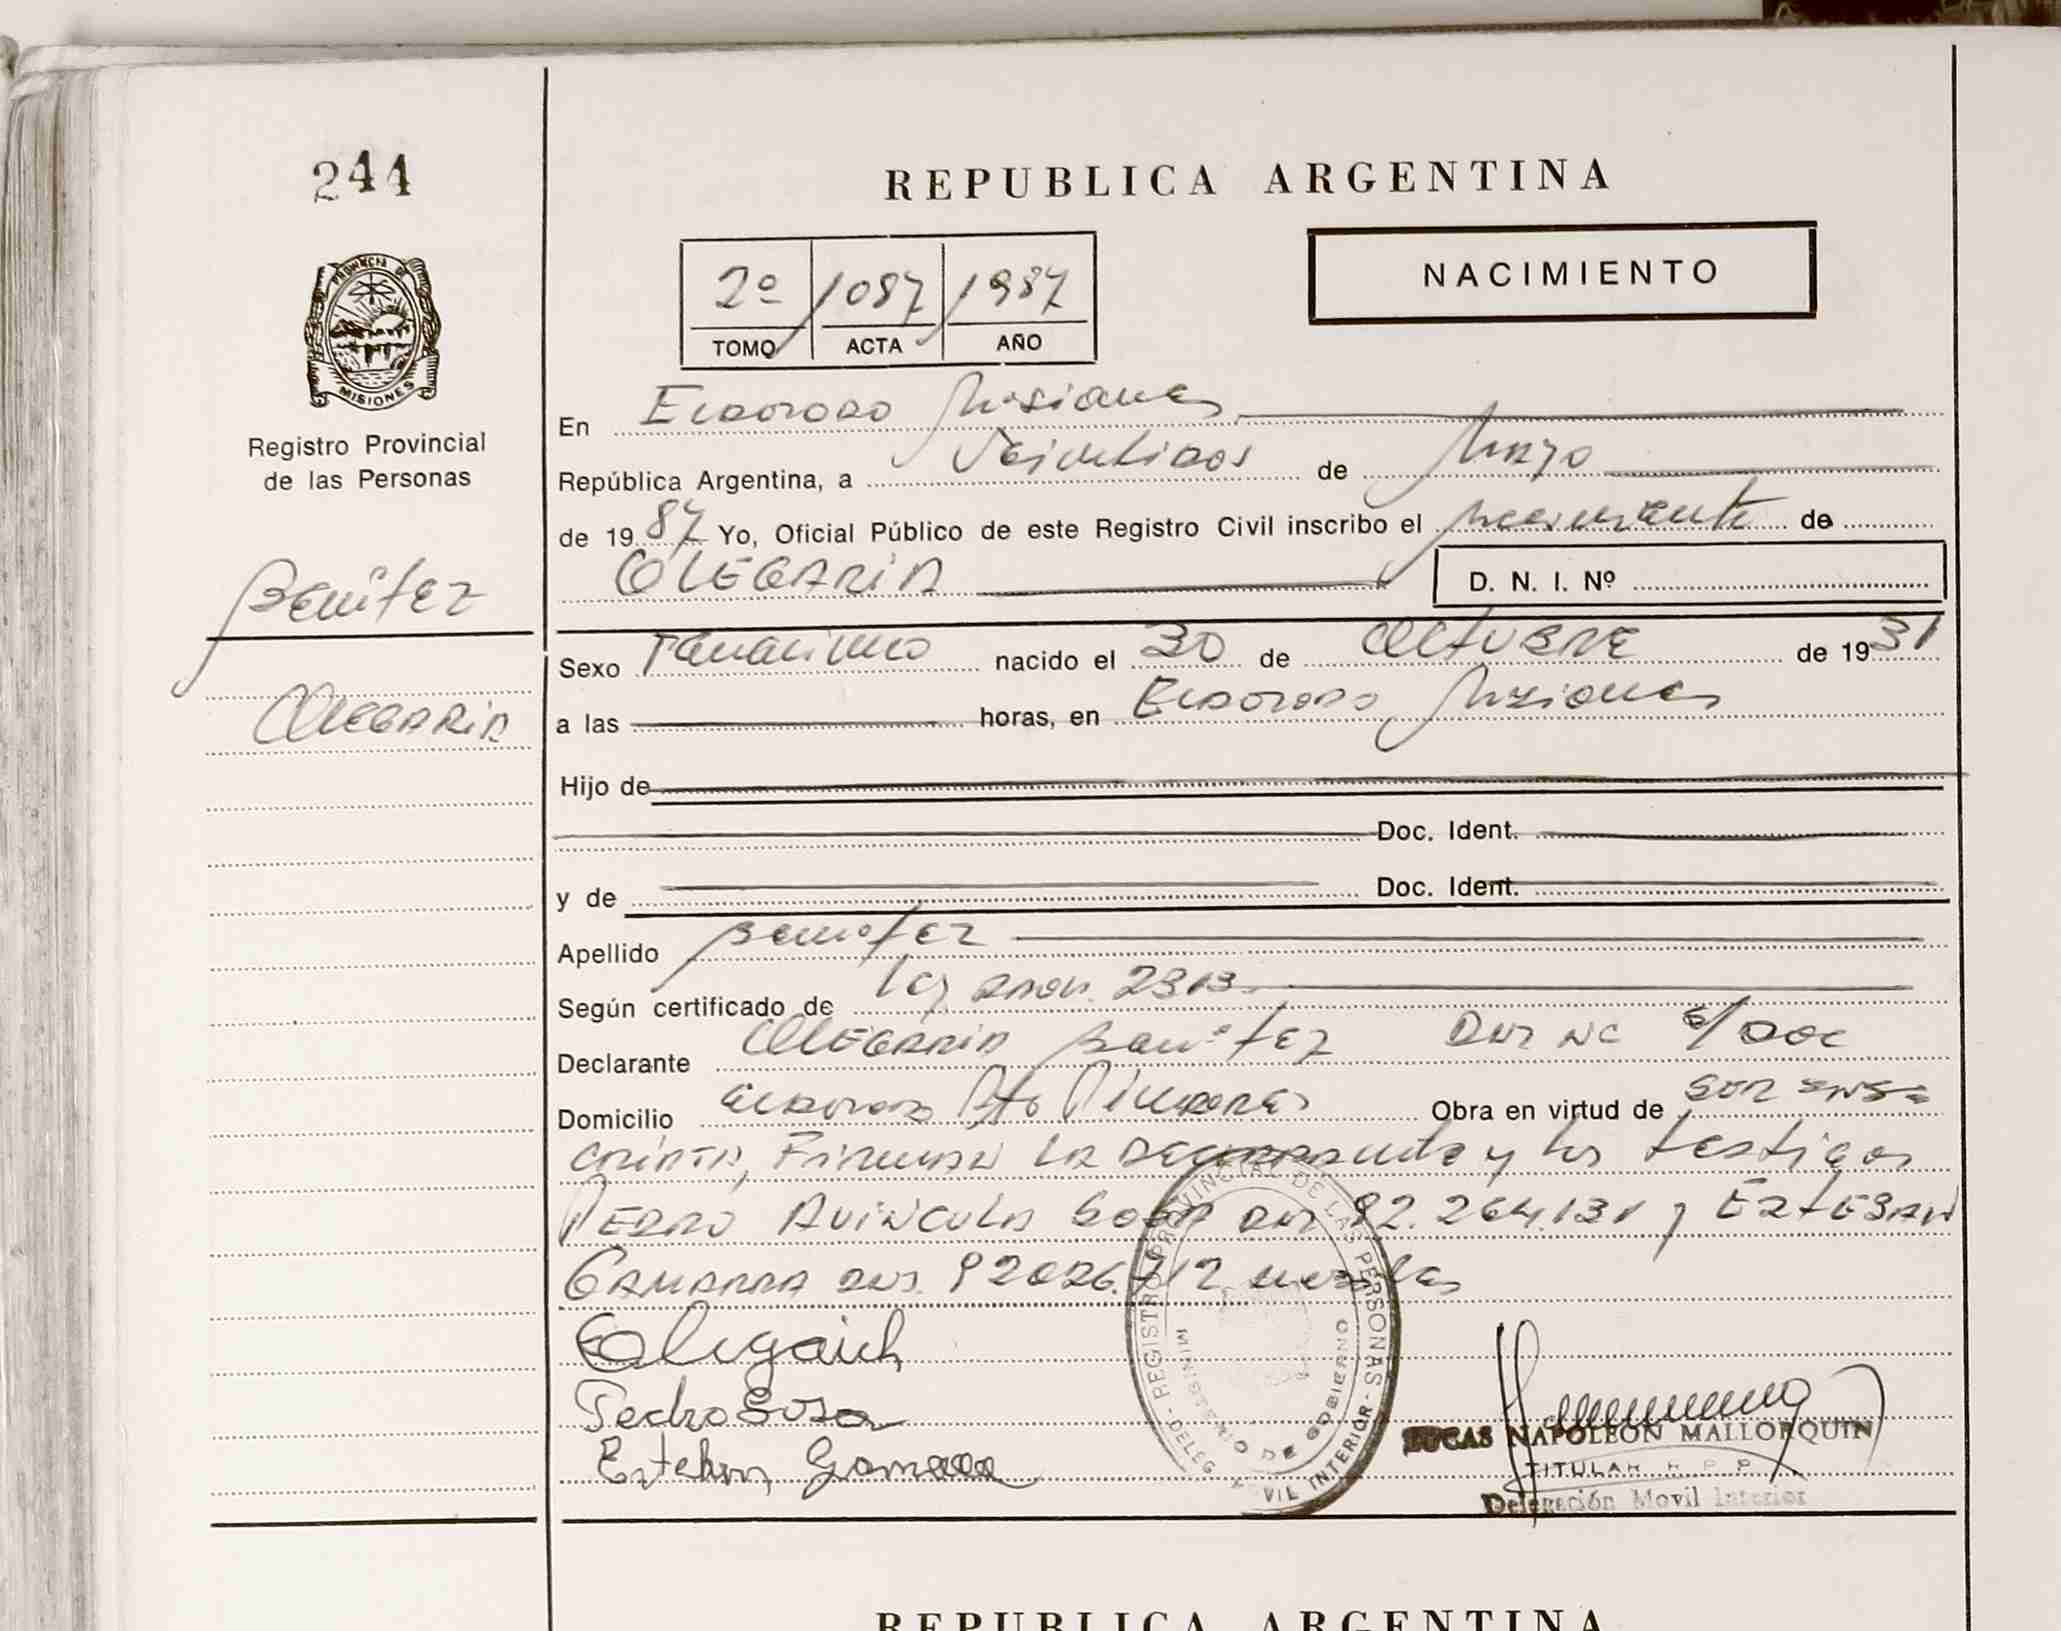 244
REPUBLICA ARGENTINA
2º 1087 1987
TOMO ACTA AÑO
NACIMIENTO
PROVINCIA DE
MISIONES
Registro Provincial
de las Personas
Benitez
OLEGARIA
En Eldorado Misiones
República Argentina, a Veintidos de Mayo
de 19 87 Yo, Oficial Público de este Registro Civil inscribo el nacimiento de
OLEGARIA D. N. I. Nº
Sexo Femenino nacido el 30 de OCTUBRE de 19 31
a las horas, en Eldorado Misiones
Hijo de
Doc. Ident.
y de Doc. Ident.
Apellido Benitez
Según certificado de Ley 2313
Declarante OLEGARIA Benitez DNI Nº S/DOC
Domicilio Eldorado Pto Pinares Obra en virtud de SER INS
CRIPTA, Firman LA Declarante y los testigos
PEDRO AVINCULA SOSA DNI 92.264.131 y ESTEBAN
GAMARRA DNI 92026.712
Olegaria
Pedro Sosa
Esteban Gamarra
REGISTRO PROVINCIAL DE LAS PERSONAS - DELEG VIL INTERIOR -
MINISTERIO DE GOBIERNO
LUCAS NAPOLEON MALLORQUIN
TITULAR R. P. P.
Delegación Movil Interior
REPUBLICA ARGENTINA